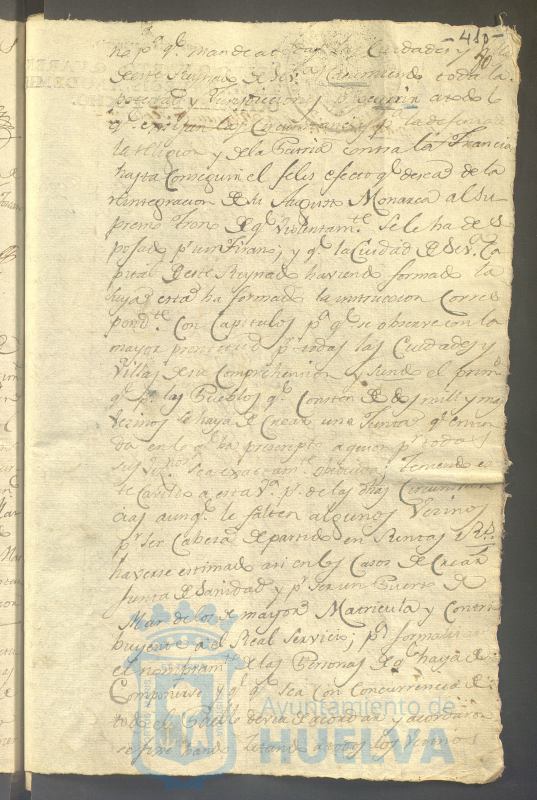 -410-
no pª qᵉ mande a todas las Ciudades y Villas
de este Reynado de Sevª reasumiendo toda la
potestad y Jurisdicciones pª ocurrir a todo lo
qᵉ exijan las circunstancias pª la defensa de
la religion y de la Patria contra la Francia
hasta conseguir el felis efecto qᵉ desea de la
reintegracion de su Augusto Monarca al Su
premo Trono de qᵉ violentamᵗᵉ se le ha des
posado pʳ un tirano; y qᵉ la Ciudad de Sevª Ca
pital de este Reynado haviendo formado la
suya esta ha formado la instruccion corres
pondᵗᵉ con Capitulos pª qᵉ se observe con la
mayor prontitud pʳ todas las Ciudades y
Villas de su comprehension y siendo el primº
qᵉ pª los Pueblos qᵉ consten de dos mill y mas
Vezinos se haya de crear una Junta qᵉ entien
da en lo qᵉ ha prescripto a quien pʳ todos
sus Vezºˢ sea exactamᵗᵉ obedecida: Teniendo es
te Cavildo a esta Vª pʳ de las dhas circunstan
cias aunqᵉ le falten algunos Vezinos
pʳ ser Cabeza de partido en Juntas
haverse estimado asi en los Casos de Crear
Junta de Sanidad y pʳ ser un Puerto de
Mar de los de mayor Matricula y Contri
buyente a el Real Servicio; pª formalizar
el nombramᵗᵒ de las Personas de qᵉ haya de
Componerse y qᵉ qᵉ sea con concurrencia de
todo el Pueblo devia de acordar y acordaron
se fixe bando zitando a todos los Vezinos
Ayuntamiento de
HUELVA